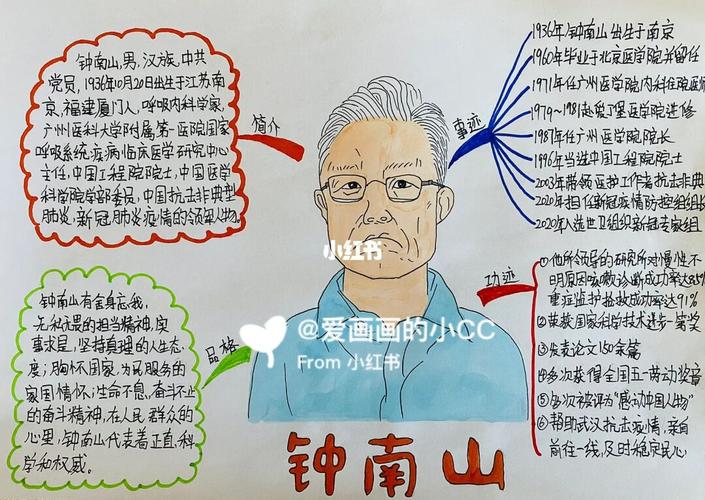 钟南山,男,汉族,中共
党员,1936年10月20日出生于江苏南
京,福建厦门人,呼吸内科学家,
广州医科大学附属第一医院国家
呼吸系统疾病临床医学研究中心
主任,中国工程院院士,中国医学
科学院学部委员,中国抗击非典型
肺炎,新冠肺炎疫情的领军人物
简介
事迹
1936年钟南山出生于南京
1960年毕业于北京医学院并留任
1971年任广州医学院内科住院医师
1979~1981赴爱丁堡医学院进修
1987年任广州医学院院长
1996年当选中国工程院院士
2003年带领医护工作者抗击非典
2020年担任新冠疫情防控组组长
2020年入选世卫组织新冠专家组
小红书
功迹
①他所领导的研究所对慢性不
明原因咳嗽诊断成功率达85%
重症监护抢救成功率达91%
②荣获国家科学技术进步一等奖
③发表论文150余篇
④多次获得全国五一劳动奖章
⑤多次被评为“感动中国人物”
⑥帮助武汉抗击疫情,亲自
前往一线,及时稳定民心
品格
钟南山有舍身忘我,
无私无畏的担当精神,实
事求是,坚持真理的人生态
度;胸怀国家,为民服务的
家国情怀;生命不息,奋斗不止
的奋斗精神,在人民群众的
心里,钟南山代表着正直,科
学和权威。
@爱画画的小CC
From 小红书
钟南山